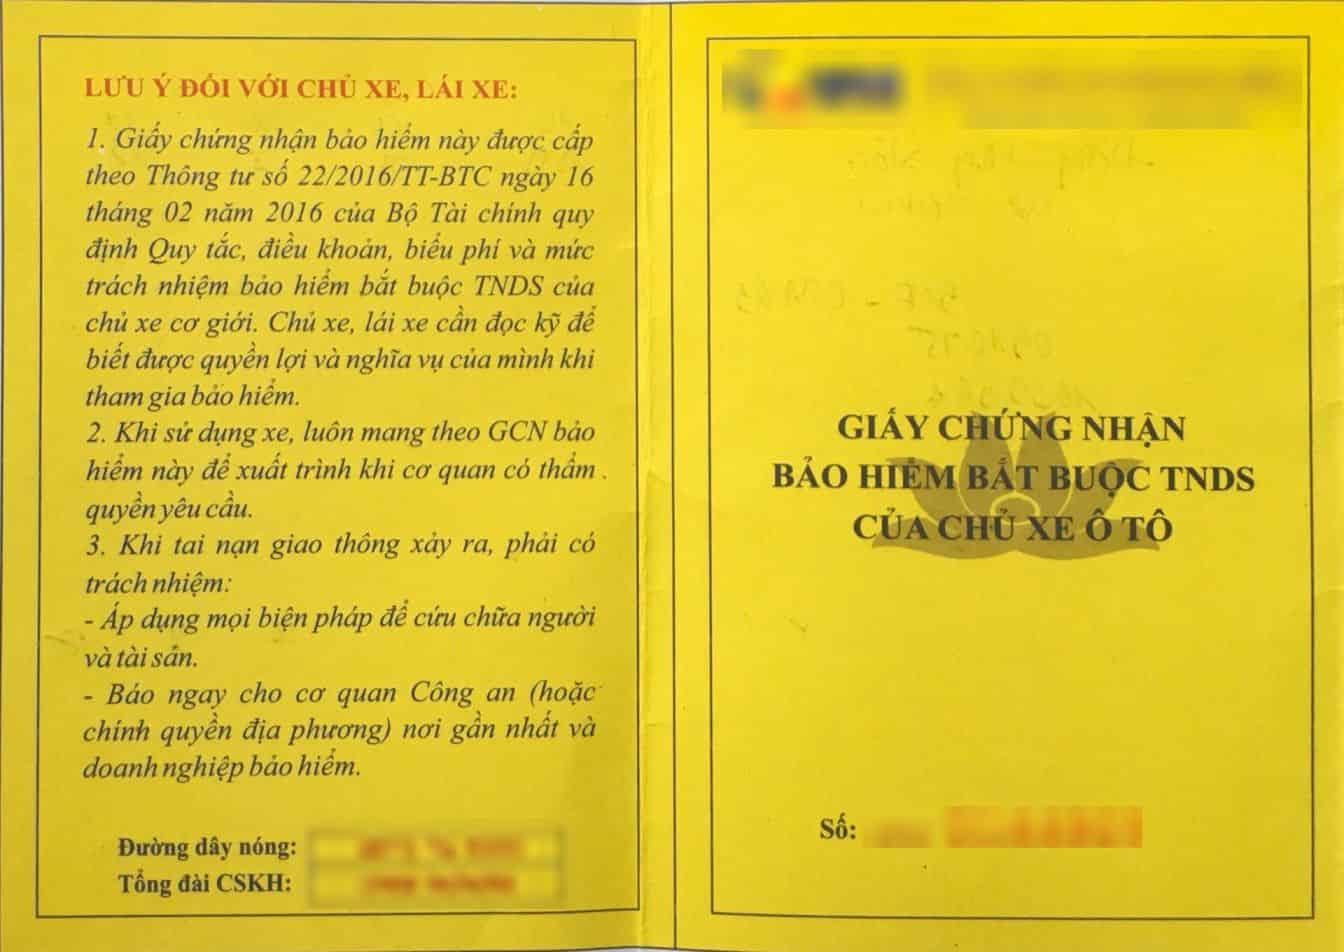 LƯU Ý ĐỐI VỚI CHỦ XE, LÁI XE:
1. Giấy chứng nhận bảo hiểm này được cấp
theo Thông tư số 22/2016/TT-BTC ngày 16
tháng 02 năm 2016 của Bộ Tài chính quy
định Quy tắc, điều khoản, biểu phí và mức
trách nhiệm bảo hiểm bắt buộc TNDS của
chủ xe cơ giới. Chủ xe, lái xe cần đọc kỹ để
biết được quyền lợi và nghĩa vụ của mình khi
tham gia bảo hiểm.
2. Khi sử dụng xe, luôn mang theo GCN bảo
hiểm này để xuất trình khi cơ quan có thẩm
quyền yêu cầu.
3. Khi tai nạn giao thông xảy ra, phải có
trách nhiệm:
- Áp dụng mọi biện pháp để cứu chữa người
và tài sản.
- Báo ngay cho cơ quan Công an (hoặc
chính quyền địa phương) nơi gần nhất và
doanh nghiệp bảo hiểm.
Đường dây nóng:
Tổng đài CSKH:
GIẤY CHỨNG NHẬN
BẢO HIỂM BẮT BUỘC TNDS
CỦA CHỦ XE Ô TÔ
Số: